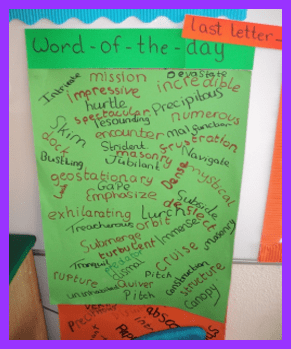 Last letter-
Word-of-the-day
mission Devastate
Intrinsic impressive incredible
hurtle Precipitous
spectacular numerous
Skim resounding
encounter malfunction
dock Strident frustration
Bustling masonry Navigate
Jubilant
geostationary Dense mystical
Gape
Emphasize Subside
exhilarating Lurch deflect
Treacherous orbit
Submerge Immense masonry
turbulent
Tranquil predator cruise
dismal
rupture Pitch Construction
Quiver structure
Pitch Canopy